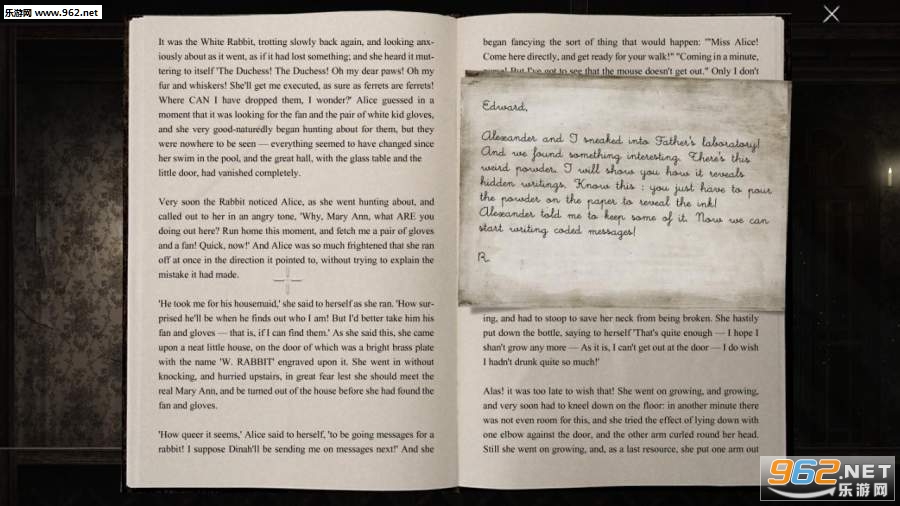 乐游网 www.962.net
It was the White Rabbit, trotting slowly back again, and looking anx-
iously about as it went, as if it had lost something; and she heard it mut-
tering to itself 'The Duchess! The Duchess! Oh my dear paws! Oh my
fur and whiskers! She'll get me executed, as sure as ferrets are ferrets!
Where CAN I have dropped them, I wonder?' Alice guessed in a
moment that it was looking for the fan and the pair of white kid gloves,
and she very good-naturedly began hunting about for them, but they
were nowhere to be seen — everything seemed to have changed since
her swim in the pool, and the great hall, with the glass table and the
little door, had vanished completely.
Very soon the Rabbit noticed Alice, as she went hunting about, and
called out to her in an angry tone, 'Why, Mary Ann, what ARE you
doing out here? Run home this moment, and fetch me a pair of gloves
and a fan! Quick, now!' And Alice was so much frightened that she ran
off at once in the direction it pointed to, without trying to explain the
mistake it had made.
'He took me for his housemaid,' she said to herself as she ran. 'How sur-
prised he'll be when he finds out who I am! But I'd better take him his
fan and gloves — that is, if I can find them.' As she said this, she came
upon a neat little house, on the door of which was a bright brass plate
with the name 'W. RABBIT' engraved upon it. She went in without
knocking, and hurried upstairs, in great fear lest she should meet the
real Mary Ann, and be turned out of the house before she had found the
fan and gloves.
'How queer it seems,' Alice said to herself, 'to be going messages for a
rabbit! I suppose Dinah'll be sending me on messages next!' And she
began fancying the sort of thing that would happen: '"Miss Alice!
Come here directly, and get ready for your walk!" "Coming in a minute,
nurse! But I've got to see that the mouse doesn't get out." Only I don't
Edward,
Alexander and I sneaked into Father's laboratory!
And we found something interesting. There's this
weird powder. I will show you how it reveals
hidden writings. Know this : you just have to pour
the powder on the paper to reveal the ink!
Alexander told me to keep some of it. Now we can
start writing coded messages!
R.
ing, and had to stoop to save her neck from being broken. She hastily
put down the bottle, saying to herself 'That's quite enough — I hope I
shan't grow any more — As it is, I can't get out at the door — I do wish
I hadn't drunk quite so much!'
Alas! it was too late to wish that! She went on growing, and growing,
and very soon had to kneel down on the floor: in another minute there
was not even room for this, and she tried the effect of lying down with
one elbow against the door, and the other arm curled round her head.
Still she went on growing, and, as a last resource, she put one arm out
962.NET
乐游网